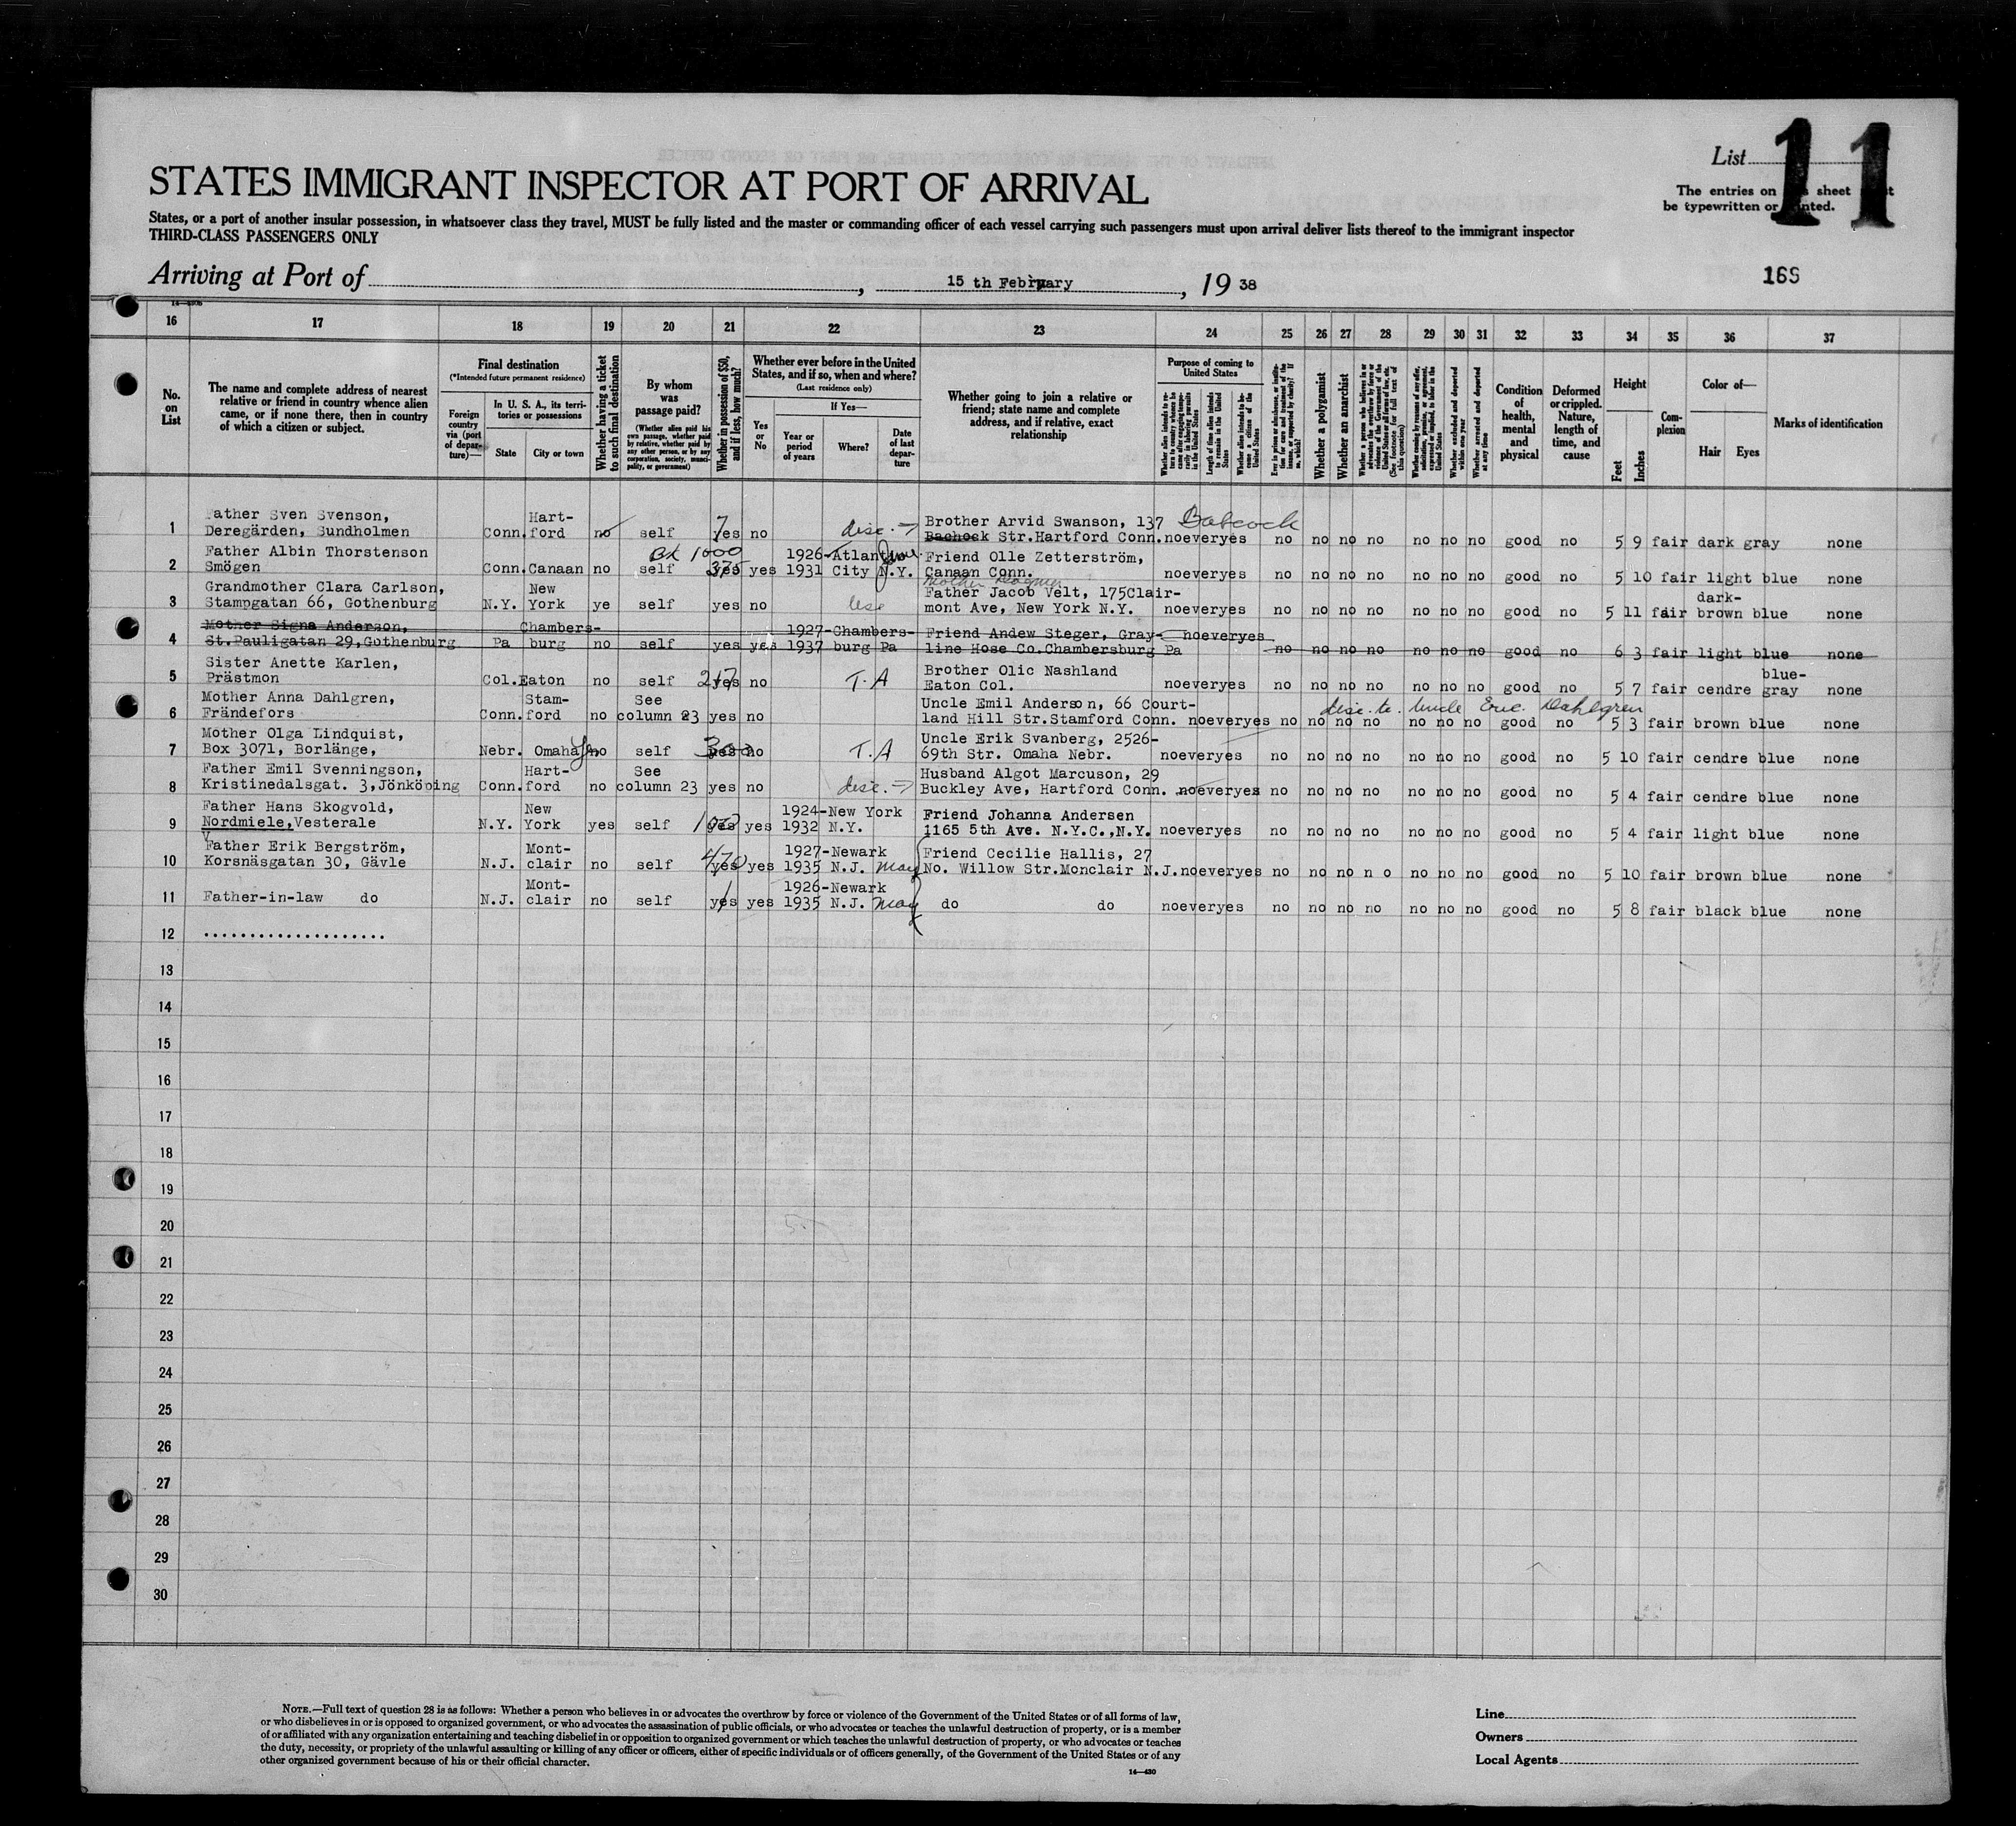 List 11
The entries on sheet
be typewritten or printed.
STATES IMMIGRANT INSPECTOR AT PORT OF ARRIVAL
States, or a port of another insular possession, in whatsoever class they travel, MUST be fully listed and the master or commanding officer of each vessel carrying such passengers must upon arrival deliver lists thereof to the immigrant inspector
THIRD-CLASS PASSENGERS ONLY
Arriving at Port of , 15 th February , 19 38
169
16 17 18 19 20 21 22 23 24 25 26 27 28 29 30 31 32 33 34 35 36 37
No. on List
The name and complete address of nearest relative or friend in country whence alien came, or if none there, then in country of which a citizen or subject.
Final destination
(*Intended future permanent residence)
Foreign country via (port of departure)—
In U. S. A., its territories or possessions
State
City or town
Whether having a ticket to such final destination
By whom was passage paid?
(Whether alien paid his own passage, whether paid by relative, whether paid by any other person, or by any corporation, society, municipality, or government)
Whether in possession of $50, and if less, how much?
Whether ever before in the United States, and if so, when and where?
(Last residence only)
Yes or No
If Yes—
Year or period of years
Where?
Date of last departure
Whether going to join a relative or friend; state name and complete address, and if relative, exact relationship
Purpose of coming to United States
Length of time alien intends to remain in the United States
Whether alien intends to become a citizen of the United States
Whether a polygamist
Whether an anarchist
Whether excluded and deported within one year
Whether arrested and deported at any time
Condition of health, mental and physical
Deformed or crippled. Nature, length of time, and cause
Height
Feet
Inches
Complexion
Color of—
Hair Eyes
Marks of identification
1 Father Sven Svenson, Hart- Brother Arvid Swanson, 137 Babcock
Deregärden, Sundholmen Conn. ford no self 7 yes no disc. → Bachock Str.Hartford Conn. no ever yes no no no no no no no good no 5 9 fair dark gray none
2 Father Albin Thorstenson 1000 1926-Atlantic Friend Olle Zetterström,
Smögen Conn. Canaan no self 375 yes yes 1931 City N.Y. Canaan Conn. no ever yes no no no no no no no good no 5 10 fair light blue none
3 Grandmother Clara Carlson, New Father Jacob Velt, 175Clair- dark-
Stampgatan 66, Gothenburg N.Y. York ye self yes no mont Ave, New York N.Y. no ever yes no no no no no no no good no 5 11 fair brown blue none
4 Mother Signa Anderson, Chambers- 1927-Chambers- Friend Andew Steger, Gray- no ever yes
St.Pauligatan 29,Gothenburg Pa burg no self yes yes 1937 burg Pa line Hose Co.Chambersburg Pa no no no no no no no good no 6 3 fair light blue none
5 Sister Anette Karlen, Brother Olic Nashland blue-
Prästmon Col. Eaton no self 217 yes no T.A Eaton Col. no ever yes no no no no no no no good no 5 7 fair cendre gray none
6 Mother Anna Dahlgren, Stam- See Uncle Emil Anderson, 66 Court- disc. to. Uncle Eric Dahlgren
Frändefors Conn. ford no column 23 yes no land Hill Str.Stamford Conn. no ever yes no no no no no no no good no 5 3 fair brown blue none
7 Mother Olga Lindquist, Uncle Erik Svanberg, 2526-
Box 3071, Borlänge, Nebr. Omaha no self 300 yes no T.A 69th Str. Omaha Nebr. no ever yes no no no no no no no good no 5 10 fair cendre blue none
8 Father Emil Svenningson, Hart- See Husband Algot Marcuson, 29
Kristinedalsgat. 3,Jönköping Conn. ford no column 23 yes no disc. → Buckley Ave, Hartford Conn. no ever yes no no no no no no no good no 5 4 fair cendre blue none
9 Father Hans Skogvold, New 1924-New York Friend Johanna Andersen
Nordmiele,Vesterale N.Y. York yes self yes yes 1932 N.Y. 1165 5th Ave. N.Y.C.,N.Y. no ever yes no no no no no no no good no 5 4 fair light blue none
10 Father Erik Bergström, Mont- 1927-Newark Friend Cecilie Hallis, 27
Korsnäsgatan 30, Gävle N.J. clair no self 470 yes yes 1935 N.J. May No. Willow Str.Monclair N.J. no ever yes no no no n o no no no good no 5 10 fair brown blue none
11 Mont- 1926-Newark
Father-in-law do N.J. clair no self yes yes 1935 N.J. May do do no ever yes no no no no no no no good no 5 8 fair black blue none
12 ....................
13
14
15
16
17
18
19
20
21
22
23
24
25
26
27
28
29
30
NOTE.—Full text of question 28 is as follows: Whether a person who believes in or advocates the overthrow by force or violence of the Government of the United States or of all forms of law,
or who disbelieves in or is opposed to organized government, or who advocates the assassination of public officials, or who advocates or teaches the unlawful destruction of property, or is a member
of or affiliated with any organization entertaining and teaching disbelief in or opposition to organized government or which teaches the unlawful destruction of property, or who advocates or teaches
the duty, necessity, or propriety of the unlawful assaulting or killing of any officer or officers, either of specific individuals or of officers generally, of the Government of the United States or of any
other organized government because of his or their official character.
14—430
Line
Owners
Local Agents